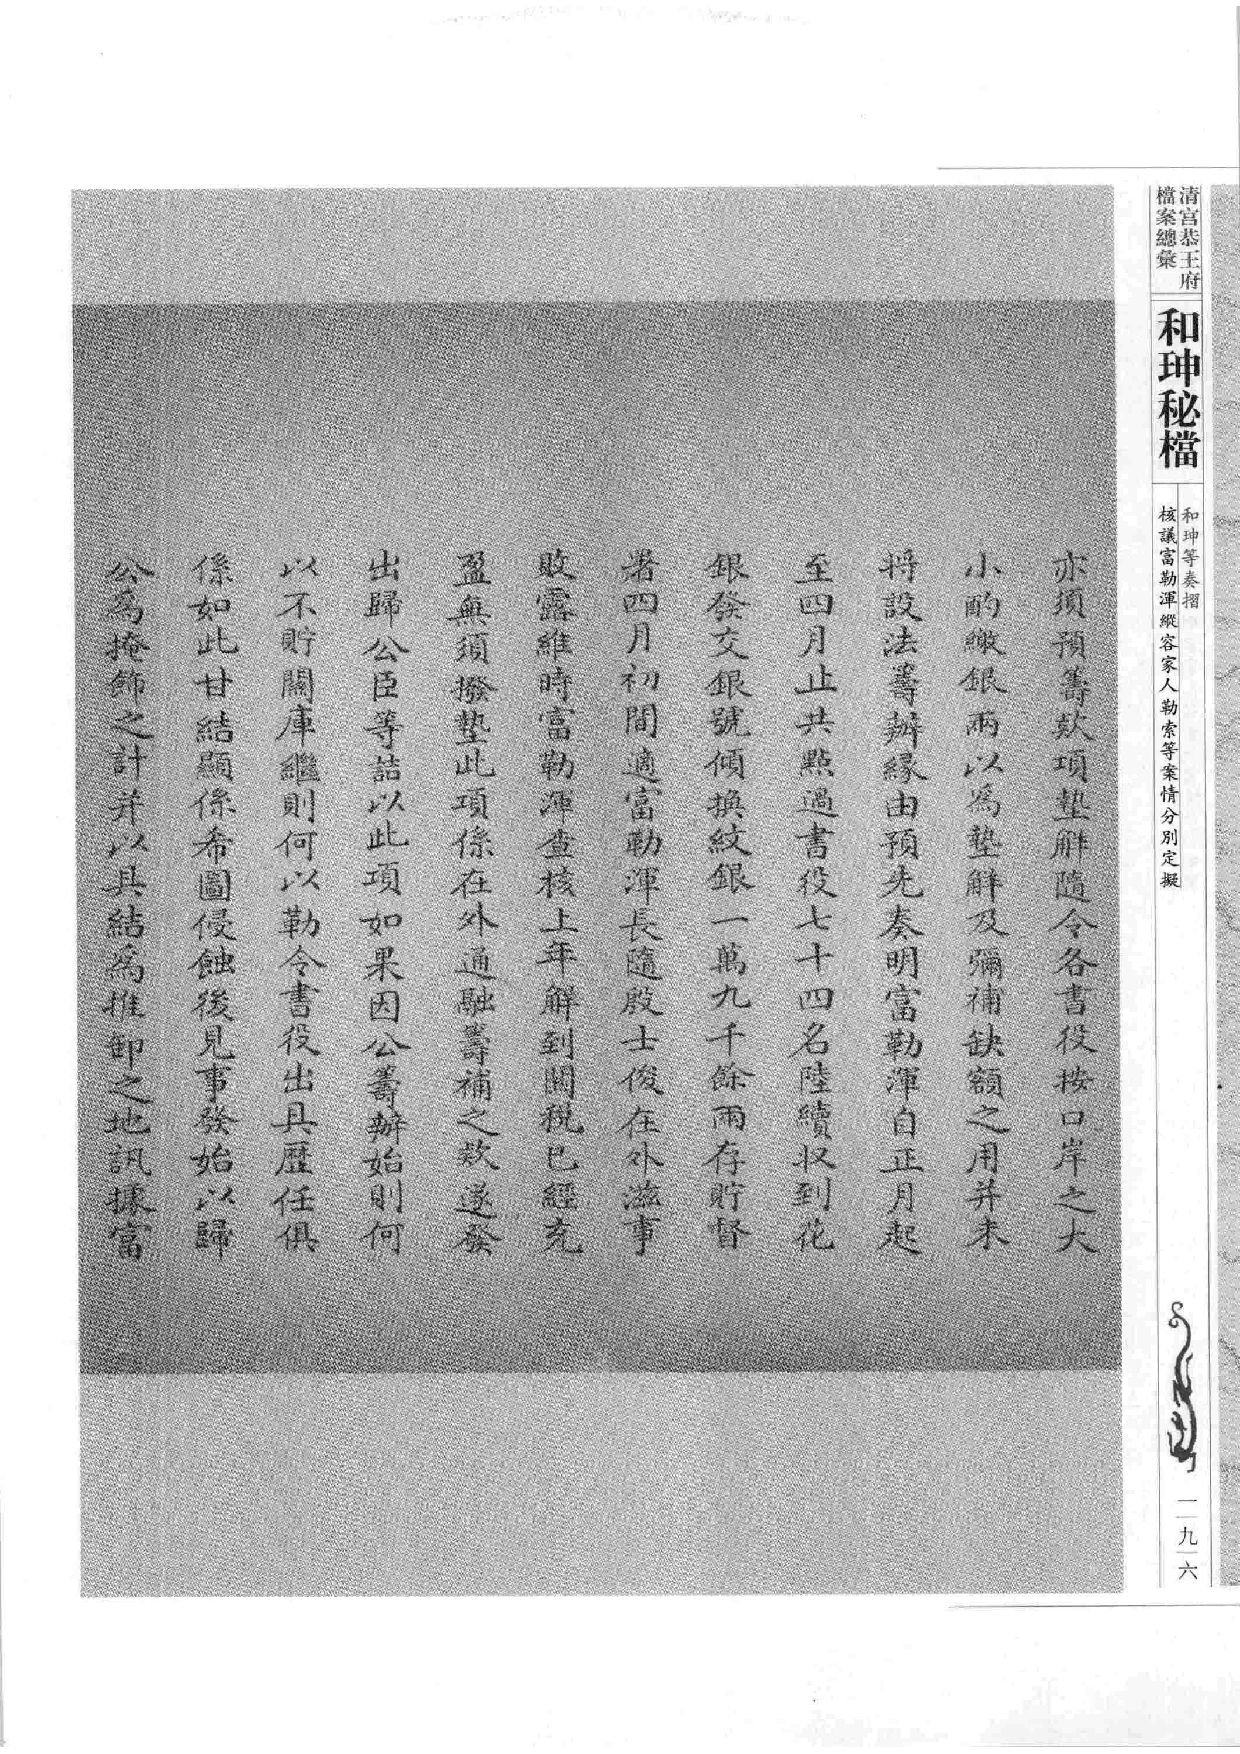 清宮恭王府
檔案總彙
和珅秘檔
和珅等奏摺
核議富勒渾縱容家人勒索等案情分別定擬
二九六
亦須預籌欵項墊解隨令各書役按口岸之大
小酌繳銀兩以爲墊解及彌補缺額之用并未
將設法籌辦緣由預先奏明富勒渾自正月起
至四月止共點過書役七十四名陸續收到花
銀發交銀號傾換紋銀一萬九千餘兩存貯督
署四月初間適富勒渾長隨殷士俊在外滋事
敗露維時富勒渾查核上年解到關稅已經充
盈無須撥墊此項係在外通融籌補之欵遂發
出歸公臣等詰以此項如果因公籌辦始則何
以不貯關庫繼則何以勒令書役出具歷任俱
係如此甘結顯係希圖侵蝕後見事發始以歸
公爲掩飾之計并以具結爲推卸之地訊據富